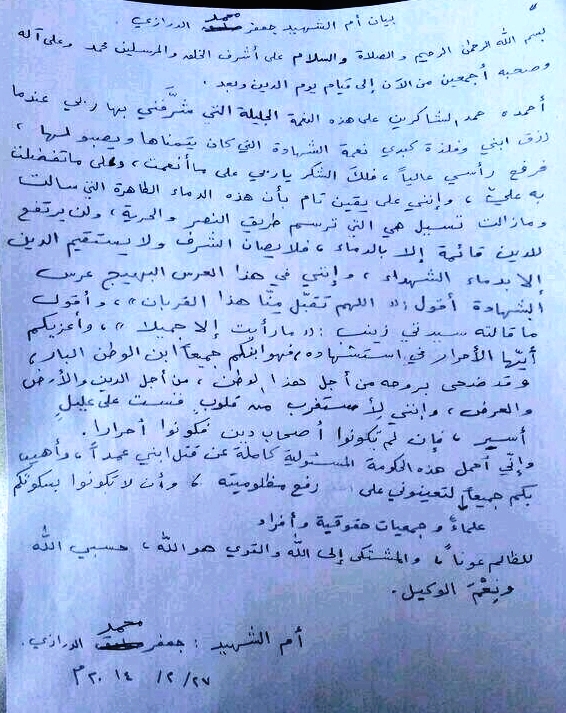 بيان أم الشهيد جعفر محمد الدرازي.
بسم الله الرحمن الرحيم والصلاة والسلام على أشرف الخلق والمرسلين محمد وعلى آله
وصحبه أجمعين من الآن إلى قيام يوم الدين وبعد.
أحمده حمد الشاكرين على هذه النعمة الجليلة التي شرّفني بها ربي عندما
رزق ابني وفلذة كبدي نعمة الشهادة التي كان يتمناها ويصبو لها،
فرفع رأسي عالياً، فلك الشكر ياربي على ما أنعمت، وعلى ما تفضلت
به عليّ، وإنني على يقين تام بأن هذه الدماء الطاهرة التي سالت
ومازالت تسيل هي التي ترسم طريق النصر والحرية، ولن يرتفع
للدين قائمة إلا بالدماء، فلا يصان الشرف ولا يستقيم الدين
إلا بدماء الشهداء، وإنني في هذا العرس البهيج عرس
الشهادة أقول: «اللهم تقبّل منّا هذا القربان»، وأقول
ما قالته سيدتي زينب: «ما رأيت إلا جميلا»، وأعزيكم
أيّها الأحرار في استشهاده، فهو ابنكم جميعاً ابن الوطن البار،
وقد ضحى بروحه من أجل هذا الوطن، من أجل الدين والأرض
والعرض، وإنني لأستغرب من قلوبٍ قست على عليلٍ
أسير، فإن لم تكونوا أصحاب دين فكونوا أحرارا.
وإنّي أحمل هذه الحكومة المسئولية كاملة عن قتل ابني عمداً، وأهيب
بكم جميعاً لتعينوني على رفع مظلوميته، وأن لا تكونوا بسكوتكم
علماءً وجمعيات حقوقية وأفراد
للظالم عوناً، والمشتكى إلى الله والقوي هو الله، حسبي الله
ونِعْمَ الوكيل.
أم الشهيد: جعفر محمد الدرازي.
٢٧/٢/٢٠١٤م